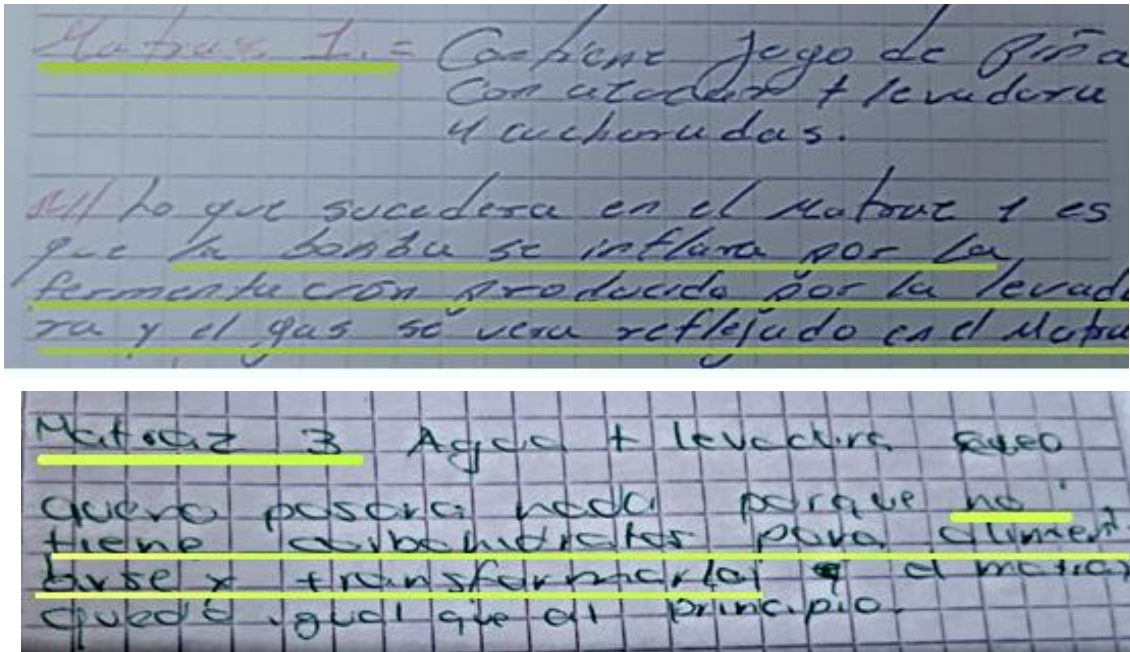 Matraz 1.= Contiene jogo de piña
con azocar + levadura
4 cucharadas.
M1/ Lo que sucedera en el Matraz 1 es
que la bomba se inflara por la
fermentación producido por la levadu
ra y el gas se vera reflejado en el Matra
Matraz 3 Agua + levadura creo
que no pasara nada porque no
tiene carbohidratos para aliment
arse y transformarla el matraz
quedo igual que al principio.